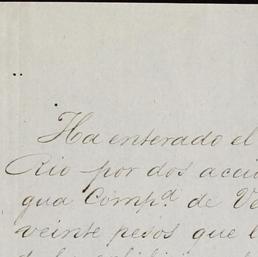 Ha enterado el
Rio por dos acci
gua Comp.ª de Va
veinte pesos que l